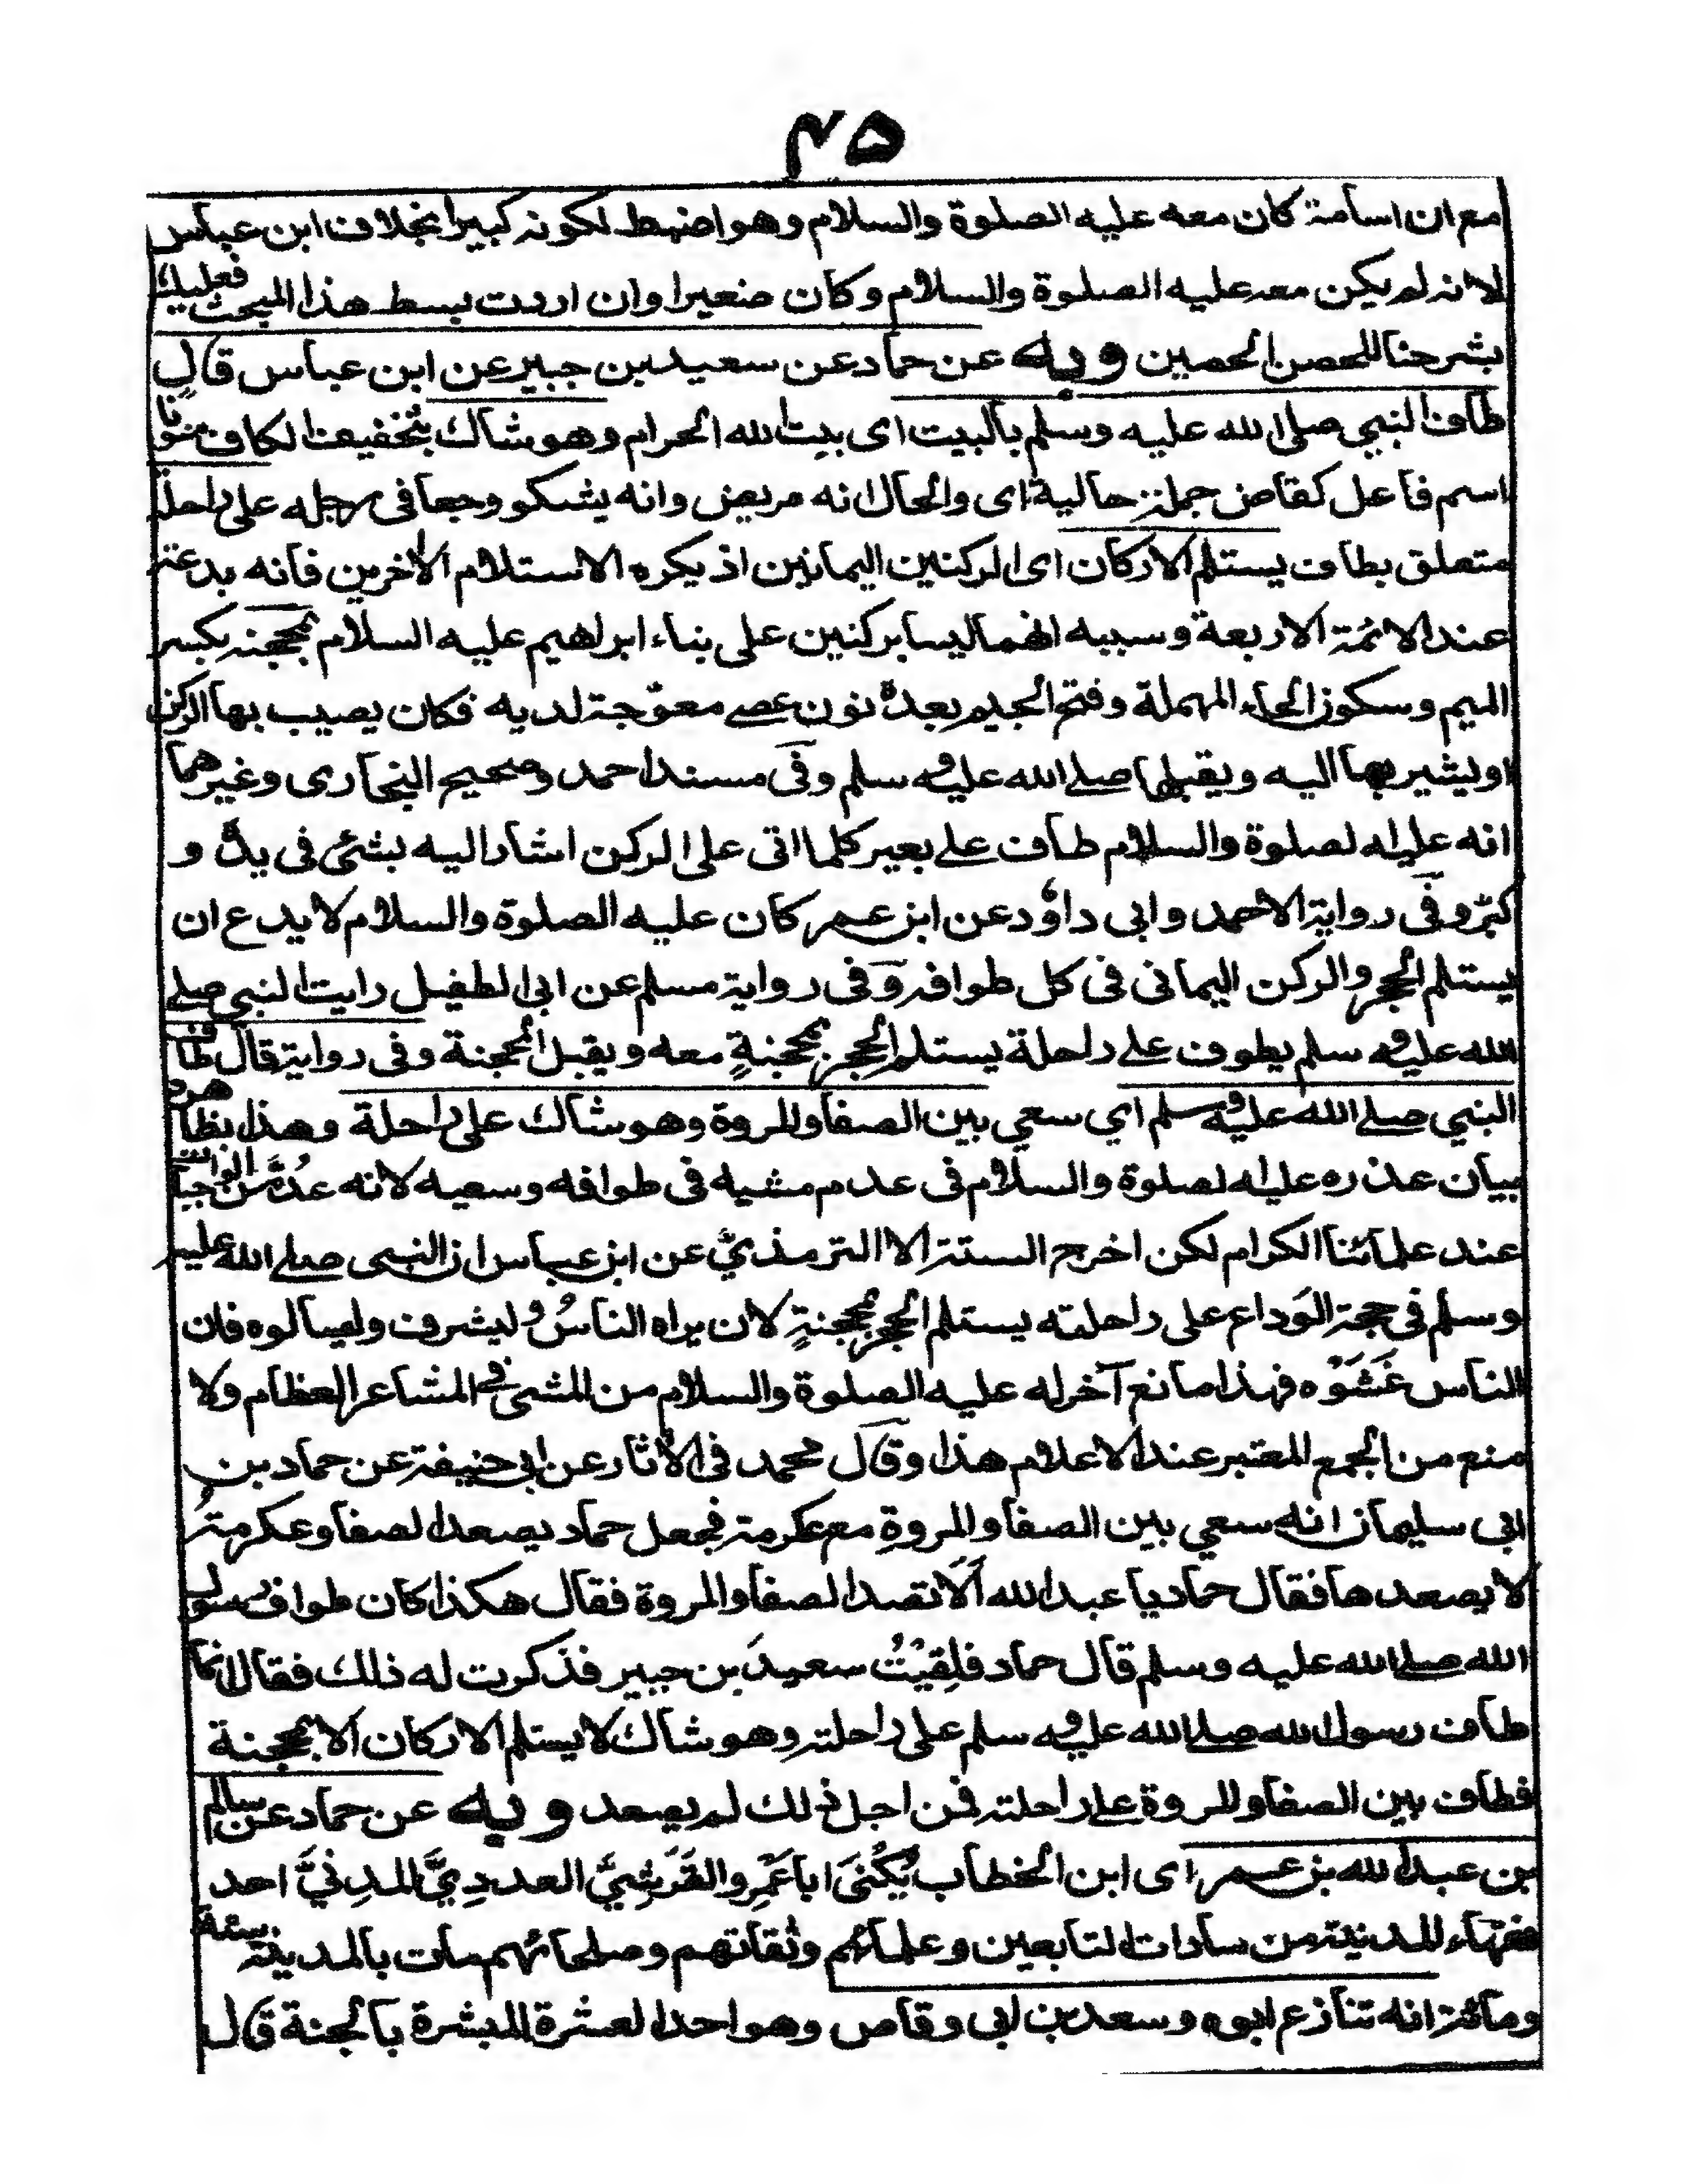 ۴۵
مع ان اسامة كان معه عليه الصلوة والسلام وهو اضبط لكونه كبيرا بخلاف ابن عباس
لانه لم يكن معه عليه الصلوة والسلام وكان صغيرا وان اردت بسط هذا المبحث فعليك
بشرحنا للحصن الحصين وبه عن حماد عن سعيد بن جبير عن ابن عباس قال
طاف النبي صلى الله عليه وسلم بالبيت اى بيت الله الحرام وهو شاك بتخفيف الكاف منونا
اسم فاعل كقاض جملة حالية اى والحال انه مريض وانه يشكو وجعا فى رجله على راحلة
متعلق بطاف يستلم الاركان اى الركنين اليمانيين اذ يكره الاستلام الاخرين فانه بدعة
عند الائمة الاربعة وسببه انهما ليسا بركنين على بناء ابراهيم عليه السلام بمحجنه بكسر
الميم وسكون الحاء المهملة وفتح الجيم بعده نون عصے معوّجة لديه فكان يصيب بها الركن
او يشير بها اليه ويقبلها صلے الله عليه وسلم وفى مسند احمد وصحيح البخارى وغيرهما
انه عليه الصلوة والسلام طاف علے بعير كلما اتى على الركن اشار اليه بشئ فى يده و
كبّر وفى رواية لاحمد وابى داؤد عن ابن عمر كان عليه الصلوة والسلام لا يدع ان
يستلم الحجر والركن اليمانى فى كل طوافه وفى رواية مسلم عن ابى الطفيل رايت النبى صلے
الله عليه وسلم يطوف علے راحلة يستلم الحجر بمحجنةٍ معه ويقبل المحجنة وفى رواية قال طاف
النبي صلے الله عليه وسلم اي سعي بين الصفا والمروة وهو شاك على راحلة وهذا بظاهره
بيان عذره عليه الصلوة والسلام فى عدم مشيه فى طوافه وسعيه لانه عُدّ من الواجبات
عند علمائنا الكرام لكن اخرج الستة الا الترمذيّ عن ابن عباس ان النبى صلے الله عليه
وسلم فى حجة الوَداع على راحلته يستلم الحجر بمحجنةٍ لان يراه الناسُ وليشرف وليسالوه فان
الناس غَشَوْه فهذا مانع آخر له عليه الصلوة والسلام من المشى فى المشاعر العظام ولا
منع من الجمع المعتبر عند الاعلام هذا وقال محمد فى الآثار عن ابى حنيفة عن حماد بن
ابى سليمان انه سعي بين الصفا والمروةِ مع عكرمة فجعل حماد يصعد الصفا وعكرمةُ
لا يصعدها فقال حماد يا عبد الله اَلَا تصد الصفا والمروة فقال هكذا كان طواف رسول
الله صلے الله عليه وسلم قال حماد فلِقيْتُ سعيدَ بن جبير فذكرت له ذلك فقال انما
طاف رسول الله صلے الله عليه وسلم على راحلته وهو شاك لا يستلم الاركان الا بمحجنة
فطاف بين الصفا والمروة علے راحلته فمن اجل ذلك لم يصعد وبه عن حماد عن سالم
بن عبد الله بن عمر اى ابن الخطاب يُكْنىَ ابا عَمْرٍو القَرَشِيَّ العددِيَّ المدِنيَّ احد
فقهاء المدينة من سادات التابعين وعلمائهم وثقاتهم وصلحائهم مات بالمدينة سنة
ومائة انه تنازع ابوه وسعد بن ابى وقاص وهو احد العشرة المبشرة بالجنة قال